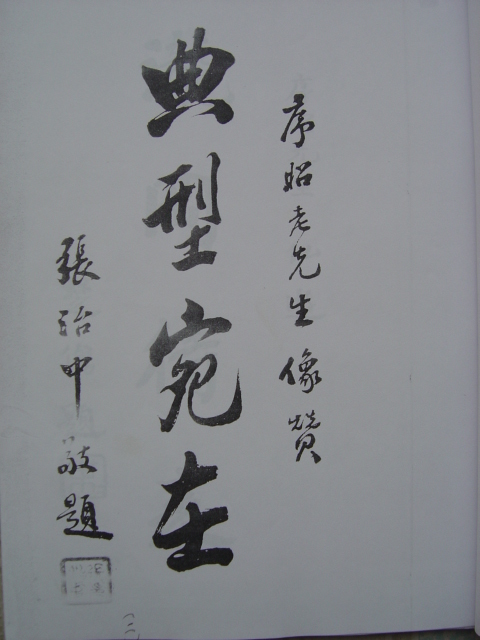 序昭老先生像贊
典型宛在
張治中敬題
(二)